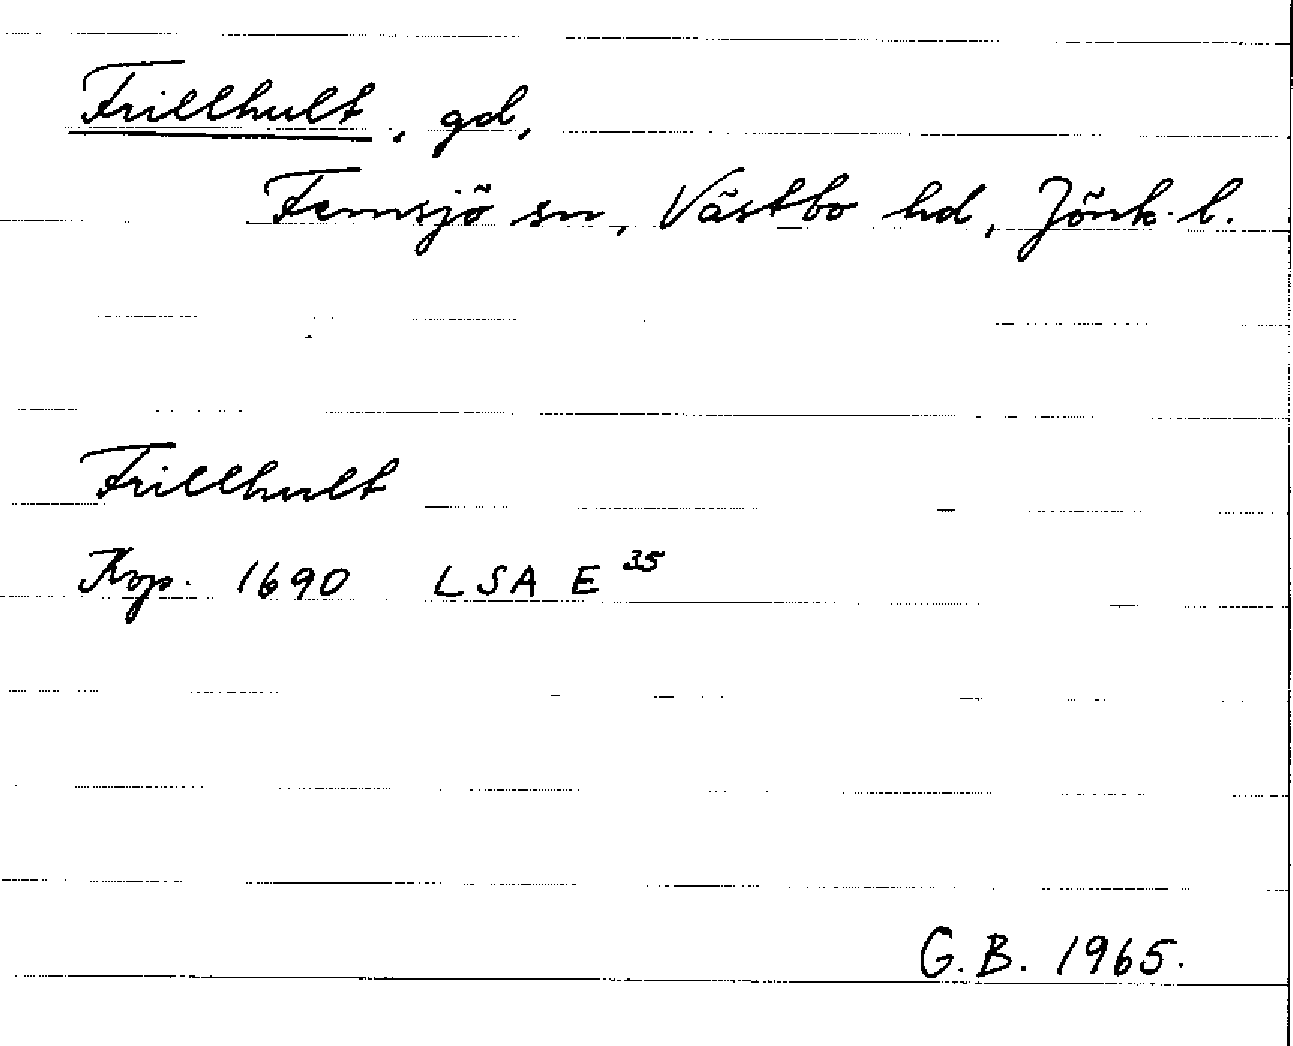 Frillhult, gd,
Femsjö sn, Västbo hd, Jönk. l.
Frillhult
Kop. 1690 LSA E 35
G.B. 1965.